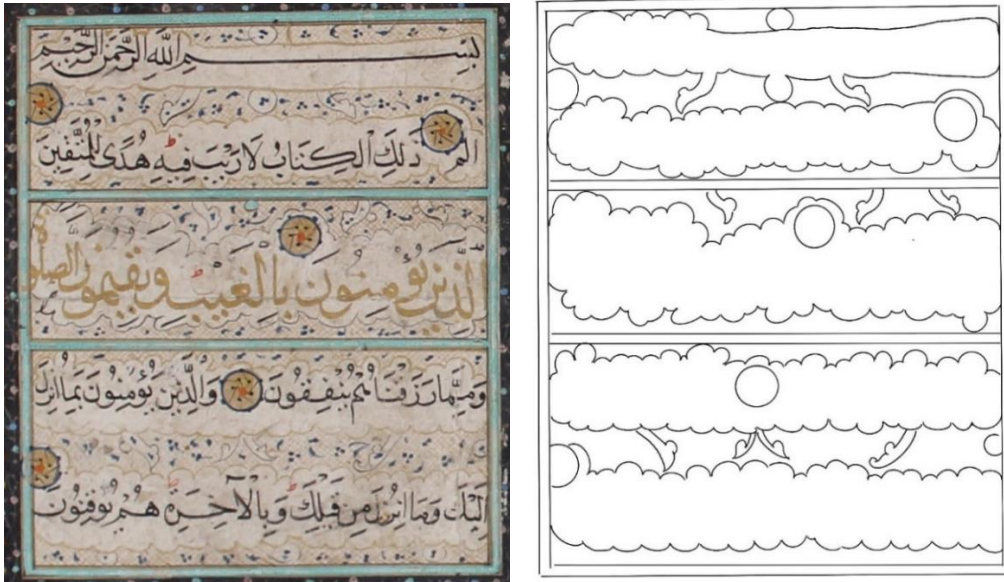 بِسْمِ اللَّهِ الرَّحْمَنِ الرَّحِيمِ
الم ذَلِكَ الْكِتَابُ لَا رَيْبَ فِيهِ هُدًى لِلْمُتَّقِينَ
الَّذِينَ يُؤْمِنُونَ بِالْغَيْبِ وَيُقِيمُونَ الصَّلَوةَ
وَمِمَّا رَزَقْنَاهُمْ يُنْفِقُونَ وَالَّذِينَ يُؤْمِنُونَ بِمَا أُنْزِلَ
إِلَيْكَ وَمَا أُنْزِلَ مِنْ قَبْلِكَ وَبِالْآخِرَةِ هُمْ يُوقِنُونَ